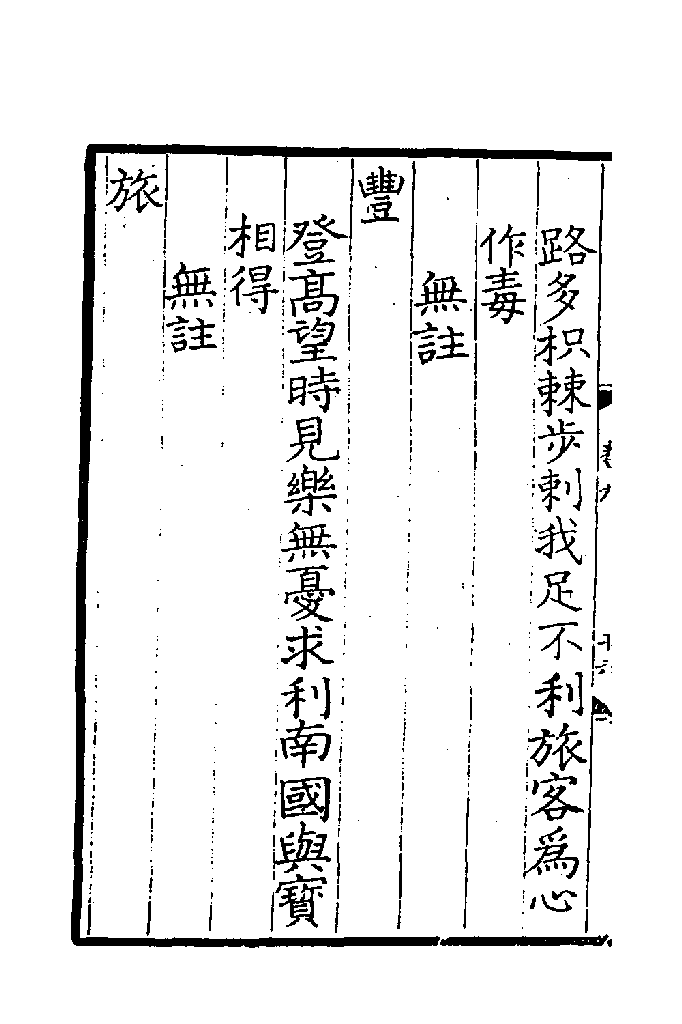 路多枳棘步刺我足不利旅客為心
作毒
無註
豐
登高望時見樂無憂求利南國與寶
相得
無註
旅